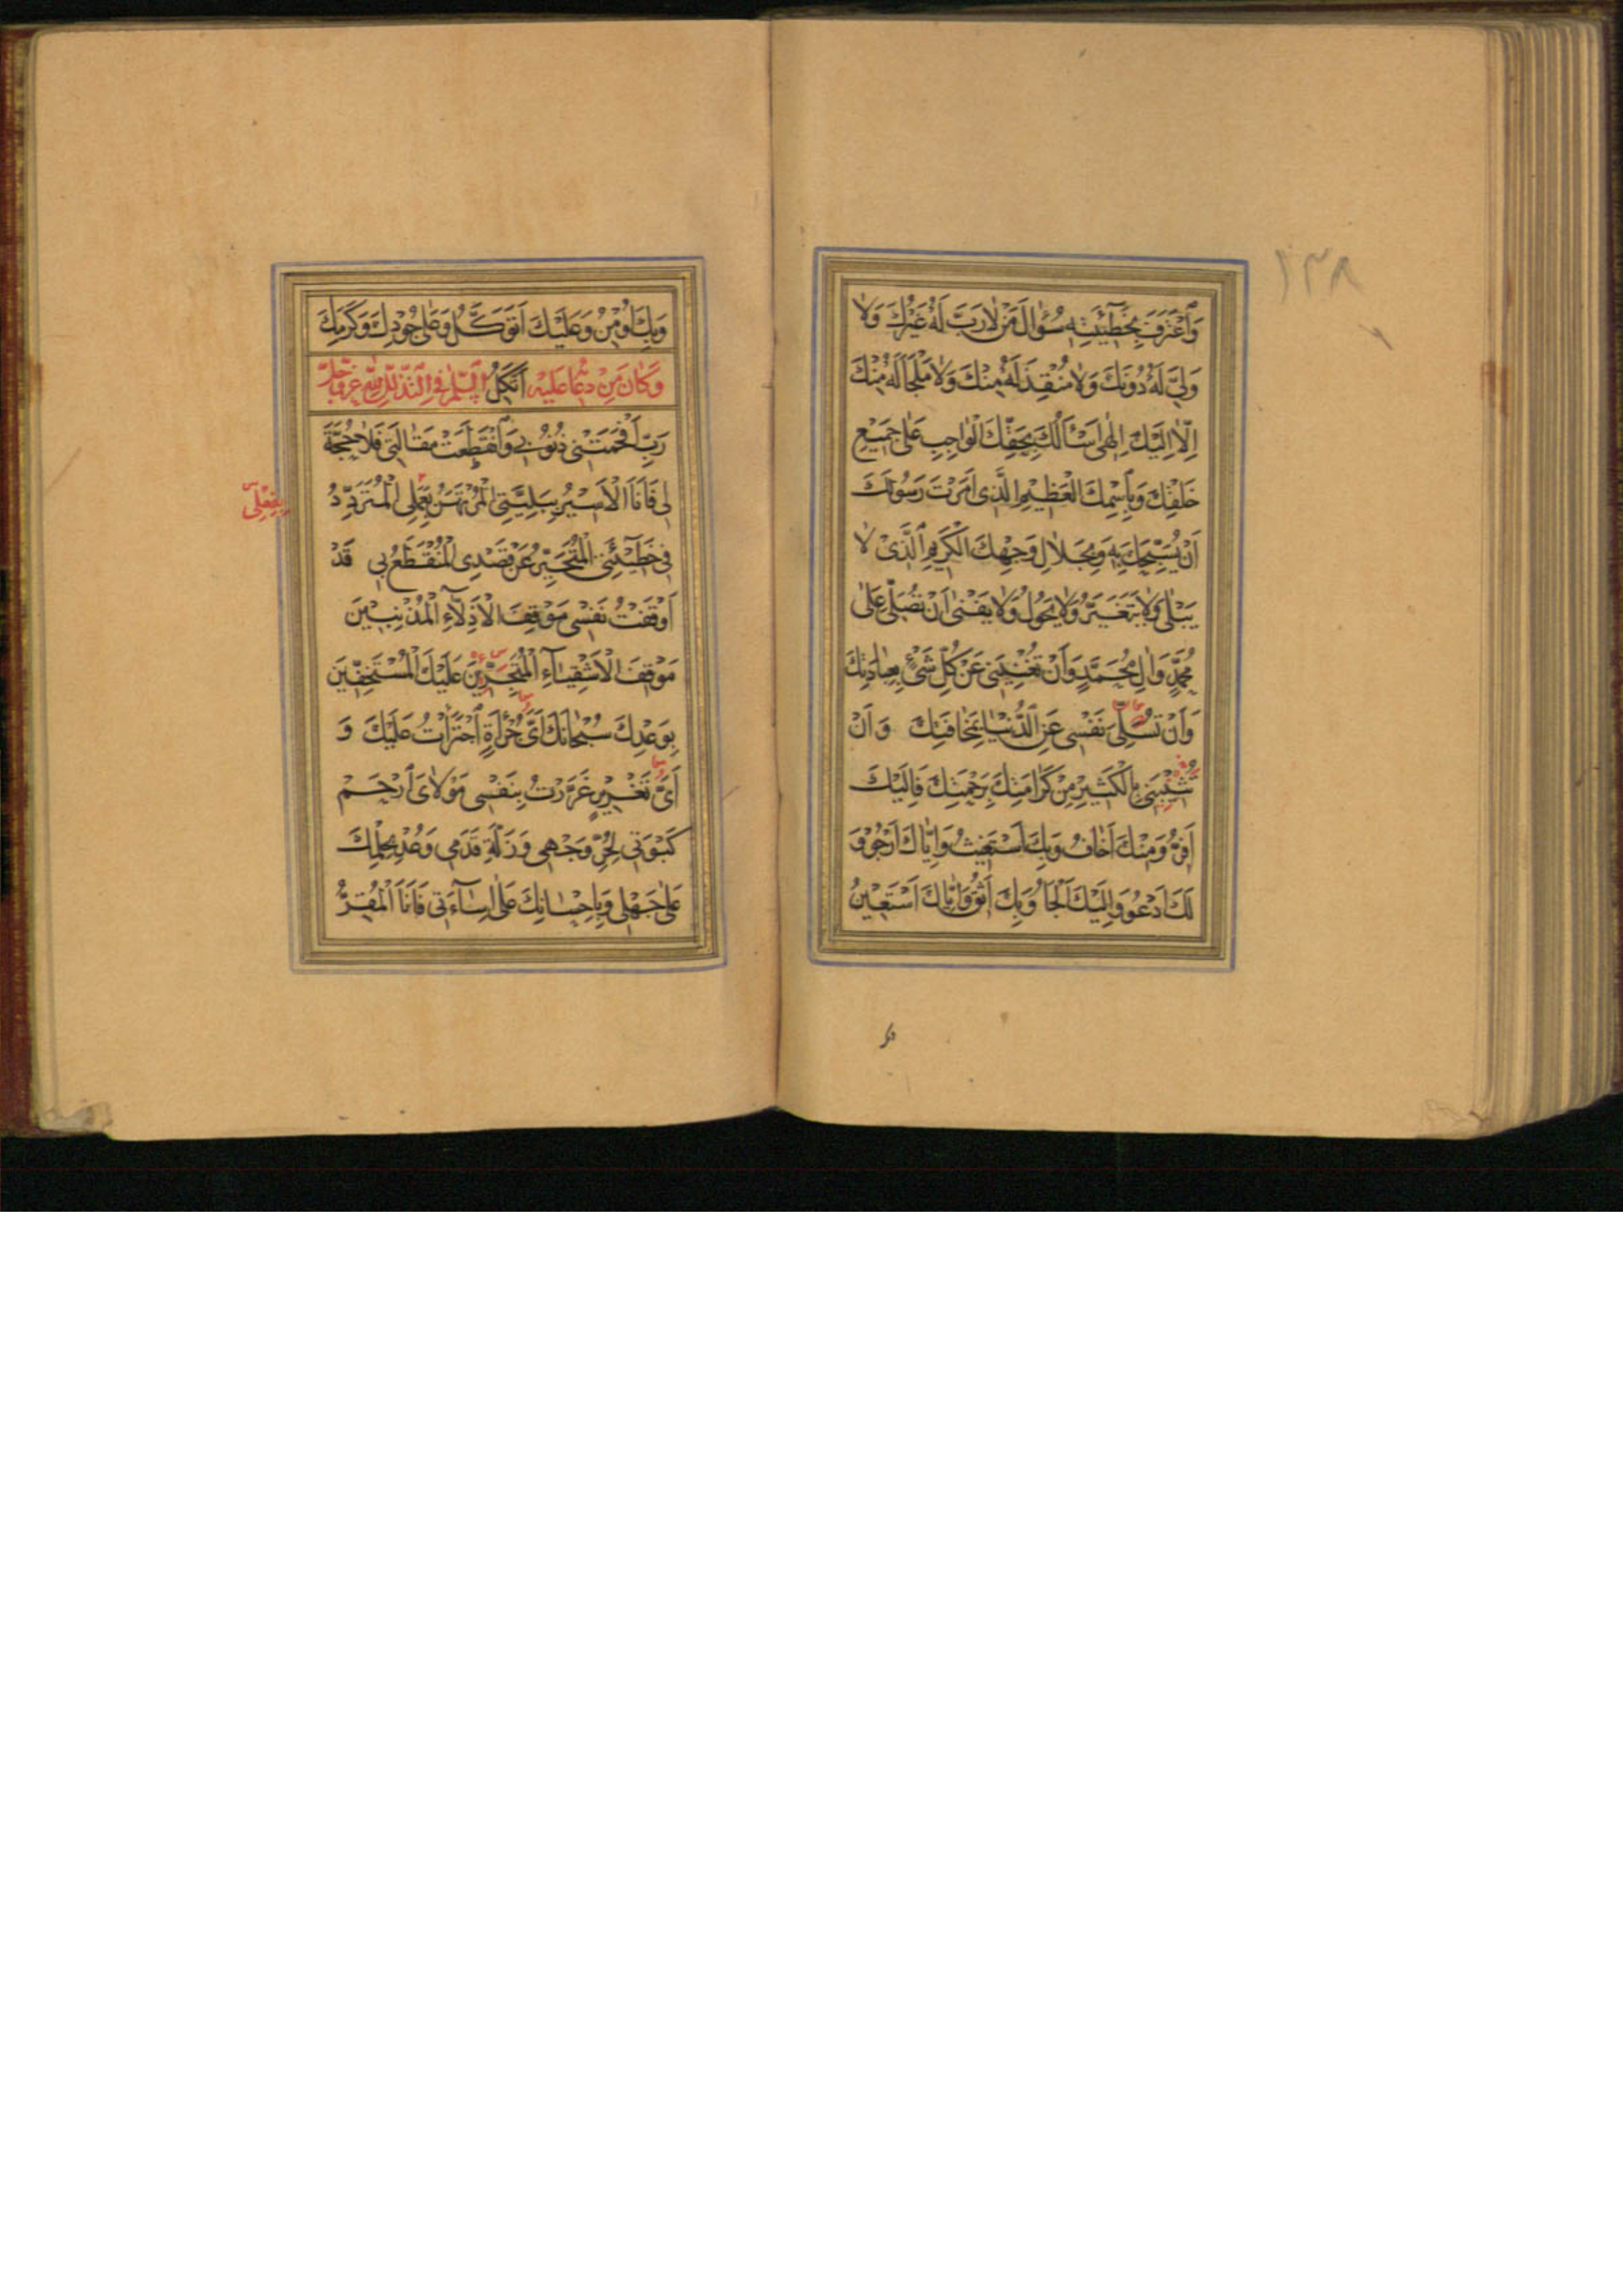 ١٣٨
وَاعْتَرَفَ بِخَطِيئَتِهِ سُؤَالَ مَنْ لَا رَبَّ لَهُ غَيْرُكَ وَلَا
وَلِيَّ لَهُ دُونَكَ وَلَا مُنْقِذَ لَهُ مِنْكَ وَلَا مَلْجَأَ لَهُ مِنْكَ
إِلَّا إِلَيْكَ إِلٰهِي أَسْأَلُكَ بِحَقِّكَ الْوَاجِبِ عَلَى جَمِيعِ
خَلْقِكَ وَبِاسْمِكَ الْعَظِيمِ الَّذِي أَمَرْتَ رَسُولَكَ
أَنْ يُسَبِّحَكَ بِهِ وَبِجَلَالِ وَجْهِكَ الْكَرِيمِ الَّذِي لَا
يَبْلَى وَلَا يَتَغَيَّرُ وَلَا يَحُولُ وَلَا يَفْنَى أَنْ تُصَلِّيَ عَلَى
مُحَمَّدٍ وَآلِ مُحَمَّدٍ وَأَنْ تُغْنِيَنِي عَنْ كُلِّ شَيْءٍ بِعِبَادَتِكَ
وَأَنْ تُسَلِّيَ نَفْسِي عَنِ الدُّنْيَا بِمَخَافَتِكَ وَأَنْ
تُثِيبَنِي بِالْكَثِيرِ مِنْ كَرَامَتِكَ بِرَحْمَتِكَ فَإِلَيْكَ
أَفِرُّ وَمِنْكَ أَخَافُ وَبِكَ أَسْتَغِيثُ وَإِيَّاكَ أَرْجُو وَ
لَكَ أَدْعُو وَإِلَيْكَ أَلْجَأُ وَبِكَ أَثِقُ وَإِيَّاكَ أَسْتَعِينُ
وَبِكَ أُومِنُ وَعَلَيْكَ أَتَوَكَّلُ وَعَلَى جُودِكَ وَكَرَمِكَ
وَكَانَ مِنْ دُعَاءِ عَلَيْهِ أَتَّكِلُ السَّلَمُ فِي التَّذَلُّلِ لِلّٰهِ عَزَّ وَجَلَّ
رَبِّ أَفْحَمَتْنِي ذُنُوبِي وَانْقَطَعَتْ مَقَالَتِي فَلَا حُجَّةَ
لِي فَأَنَا الْأَسِيرُ بِبَلِيَّتِي الْمُرْتَهَنُ بِعَمَلِي الْمُتَرَدِّدُ
بِفِعْلِي
فِي خَطِيئَتِي الْمُتَحَيِّرُ عَنْ قَصْدِي الْمُنْقَطَعُ بِي قَدْ
أَوْقَفْتُ نَفْسِي مَوْقِفَ الْأَذِلَّاءِ الْمُذْنِبِينَ
مَوْقِفَ الْأَشْقِيَاءِ الْمُتَجَرِّينَ عَلَيْكَ الْمُسْتَخِفِّينَ
بِوَعْدِكَ سُبْحَانَكَ أَيَّ جُرْأَةٍ اجْتَرَأْتُ عَلَيْكَ وَ
أَيَّ تَغْرِيرٍ غَرَّرْتُ بِنَفْسِي مَوْلَايَ ارْحَمْ
كَبْوَتِي لِحُرِّ وَجْهِي وَزَلَّةِ قَدَمِي وَعُدْ بِحِلْمِكَ
عَلَى جَهْلِي وَبِإِحْسَانِكَ عَلَى إِسَاءَتِي فَأَنَا الْمُقِرُّ